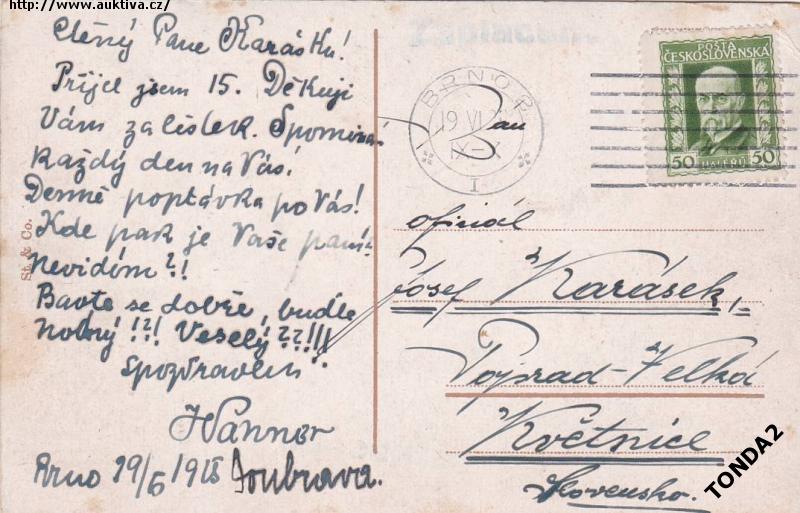 http://www.auktiva.cz/
Ctěný Pane Karásku!
Přijel jsem 15. Děkuji
Vám za lístek. Spomínám
každý den na Vás!
Denně poptávka po Vás!
Kde pak je Vaše paní?
Nevidóm?!
Bavte se dobře, buďte
hodný!?! Veselý??!!!
Spozdravem
Wanner
Brno 19/6 1928 Doubrava.
St. & Co.
BRNO 2
19 VI
IX-X
I
POŠTA
ČESKOSLOVENSKÁ
50 HALÉŘŮ 50
Pan
oficiál
Josef Karásek,
Poprad-Velká
Květnice
Slovensko.
TONDA2